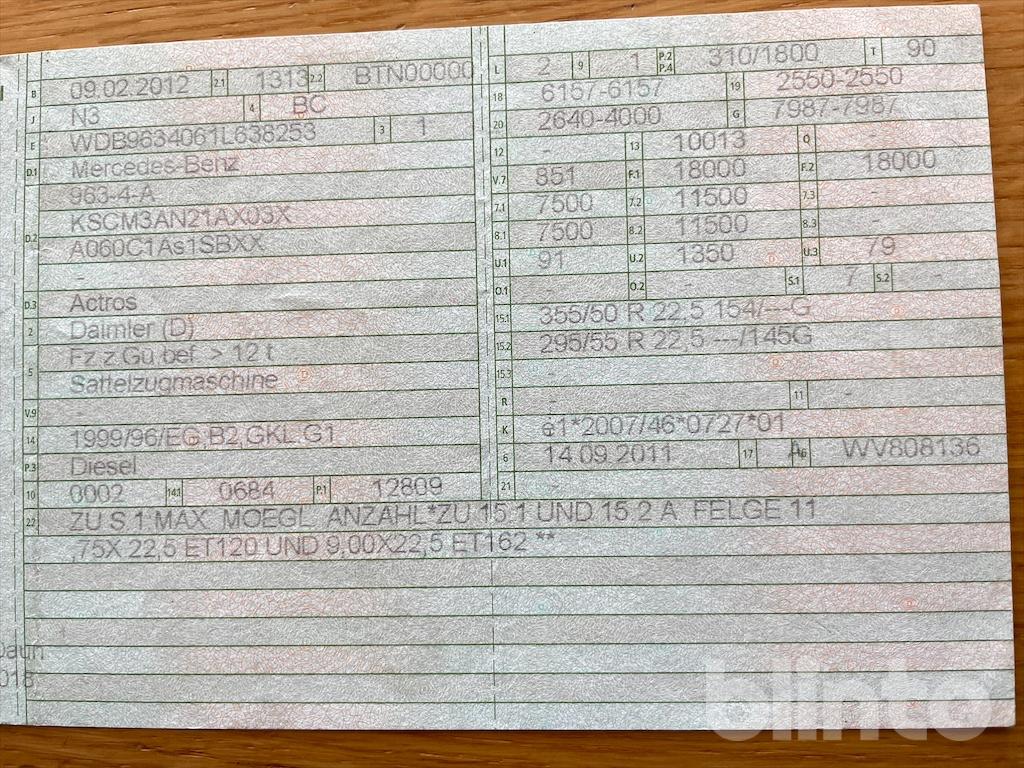 B 09.02.2012 2.1 1313 2.2 BTN00000
J N3 4 BC
E WDB9634061L638253 3 1
D.1 Mercedes-Benz
963-4-A
D.2 KSCM3AN21AX03X
A060C1As1SBXX
-
D.3 Actros
2 Daimler (D)
5 Fz.z.Gü.bef. > 12 t
Sattelzugmaschine
V.9 -
14 1999/96/EG;B2;GKL:G1
P.3 Diesel
10 0002 14.1 0684 P.1 12809
L 2 9 1 P.2 P.4 310/1800 T 90
18 6157-6157 19 2550-2550
20 2640-4000 G 7987-7987
12 - 13 10013 Q -
V.7 851 F.1 18000 F.2 18000
7.1 7500 7.2 11500 7.3 -
8.1 7500 8.2 11500 8.3 -
U.1 91 U.2 1350 U.3 79
O.1 - O.2 - S.1 7 S.2
15.1 355/50 R 22,5 154/---G
15.2 295/55 R 22,5 ---/145G
15.3 -
R - 11 -
K e1*2007/46*0727*01
6 14.09.2011 17 A 16 WV808136
21 -
22 ZU S.1:MAX. MOEGL. ANZAHL*ZU 15.1 UND 15.2:A. FELGE 11
,75X 22,5 ET120 UND 9,00X22,5 ET162 **
Daun
018
blinto